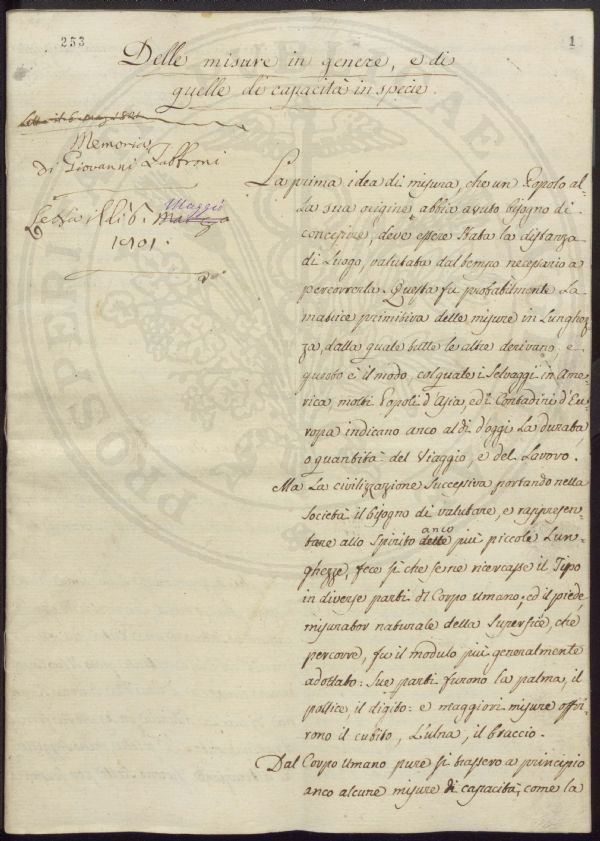 253
1
Delle misure in genere, e di
quelle di capacità in specie.
Letta il 6.
Memoria
di Giovanni Fabbroni
Letta illi 6. Maggio
1801.
La prima idea di misura, che un Popolo al-
la sua origine, abbia avuto bisogno di
concepire, deve essere stata la distanza
di Luogo, valutata dal tempo necesario a
percorrerla. Questa fu probabilmente la
matrice primitiva delle misure in Lunghez-
za, dalla quale tutte le altre derivano, e
questo è il modo, col quale i Selvaggi in Ame-
rica, molti Popoli d'Asia, ed i Contadini d'Eu-
ropa indicano anco al dì d'oggi la durata
o quantità del Viaggio, e del Lavoro.
Ma la civilizzazione successiva portando nella
società il bisogno di valutare, e rappresen-
tare allo spirito anco delle più piccole Lun-
ghezze, fece sì che se ne ricercasse il Tipo
in diverse parti del Corpo umano; ed il piede,
misurator naturale della Superfice, che
percorre, fu il modulo più generalmente
adottato: sue parti furono la palma, il
pollice, il digito: e maggiori misure offri-
rono il cubito, l'ulna, il braccio.
Dal Corpo umano pure si trassero a principio
anco alcune misure di capacità, come la
PROSPERITATI PUBLICAE